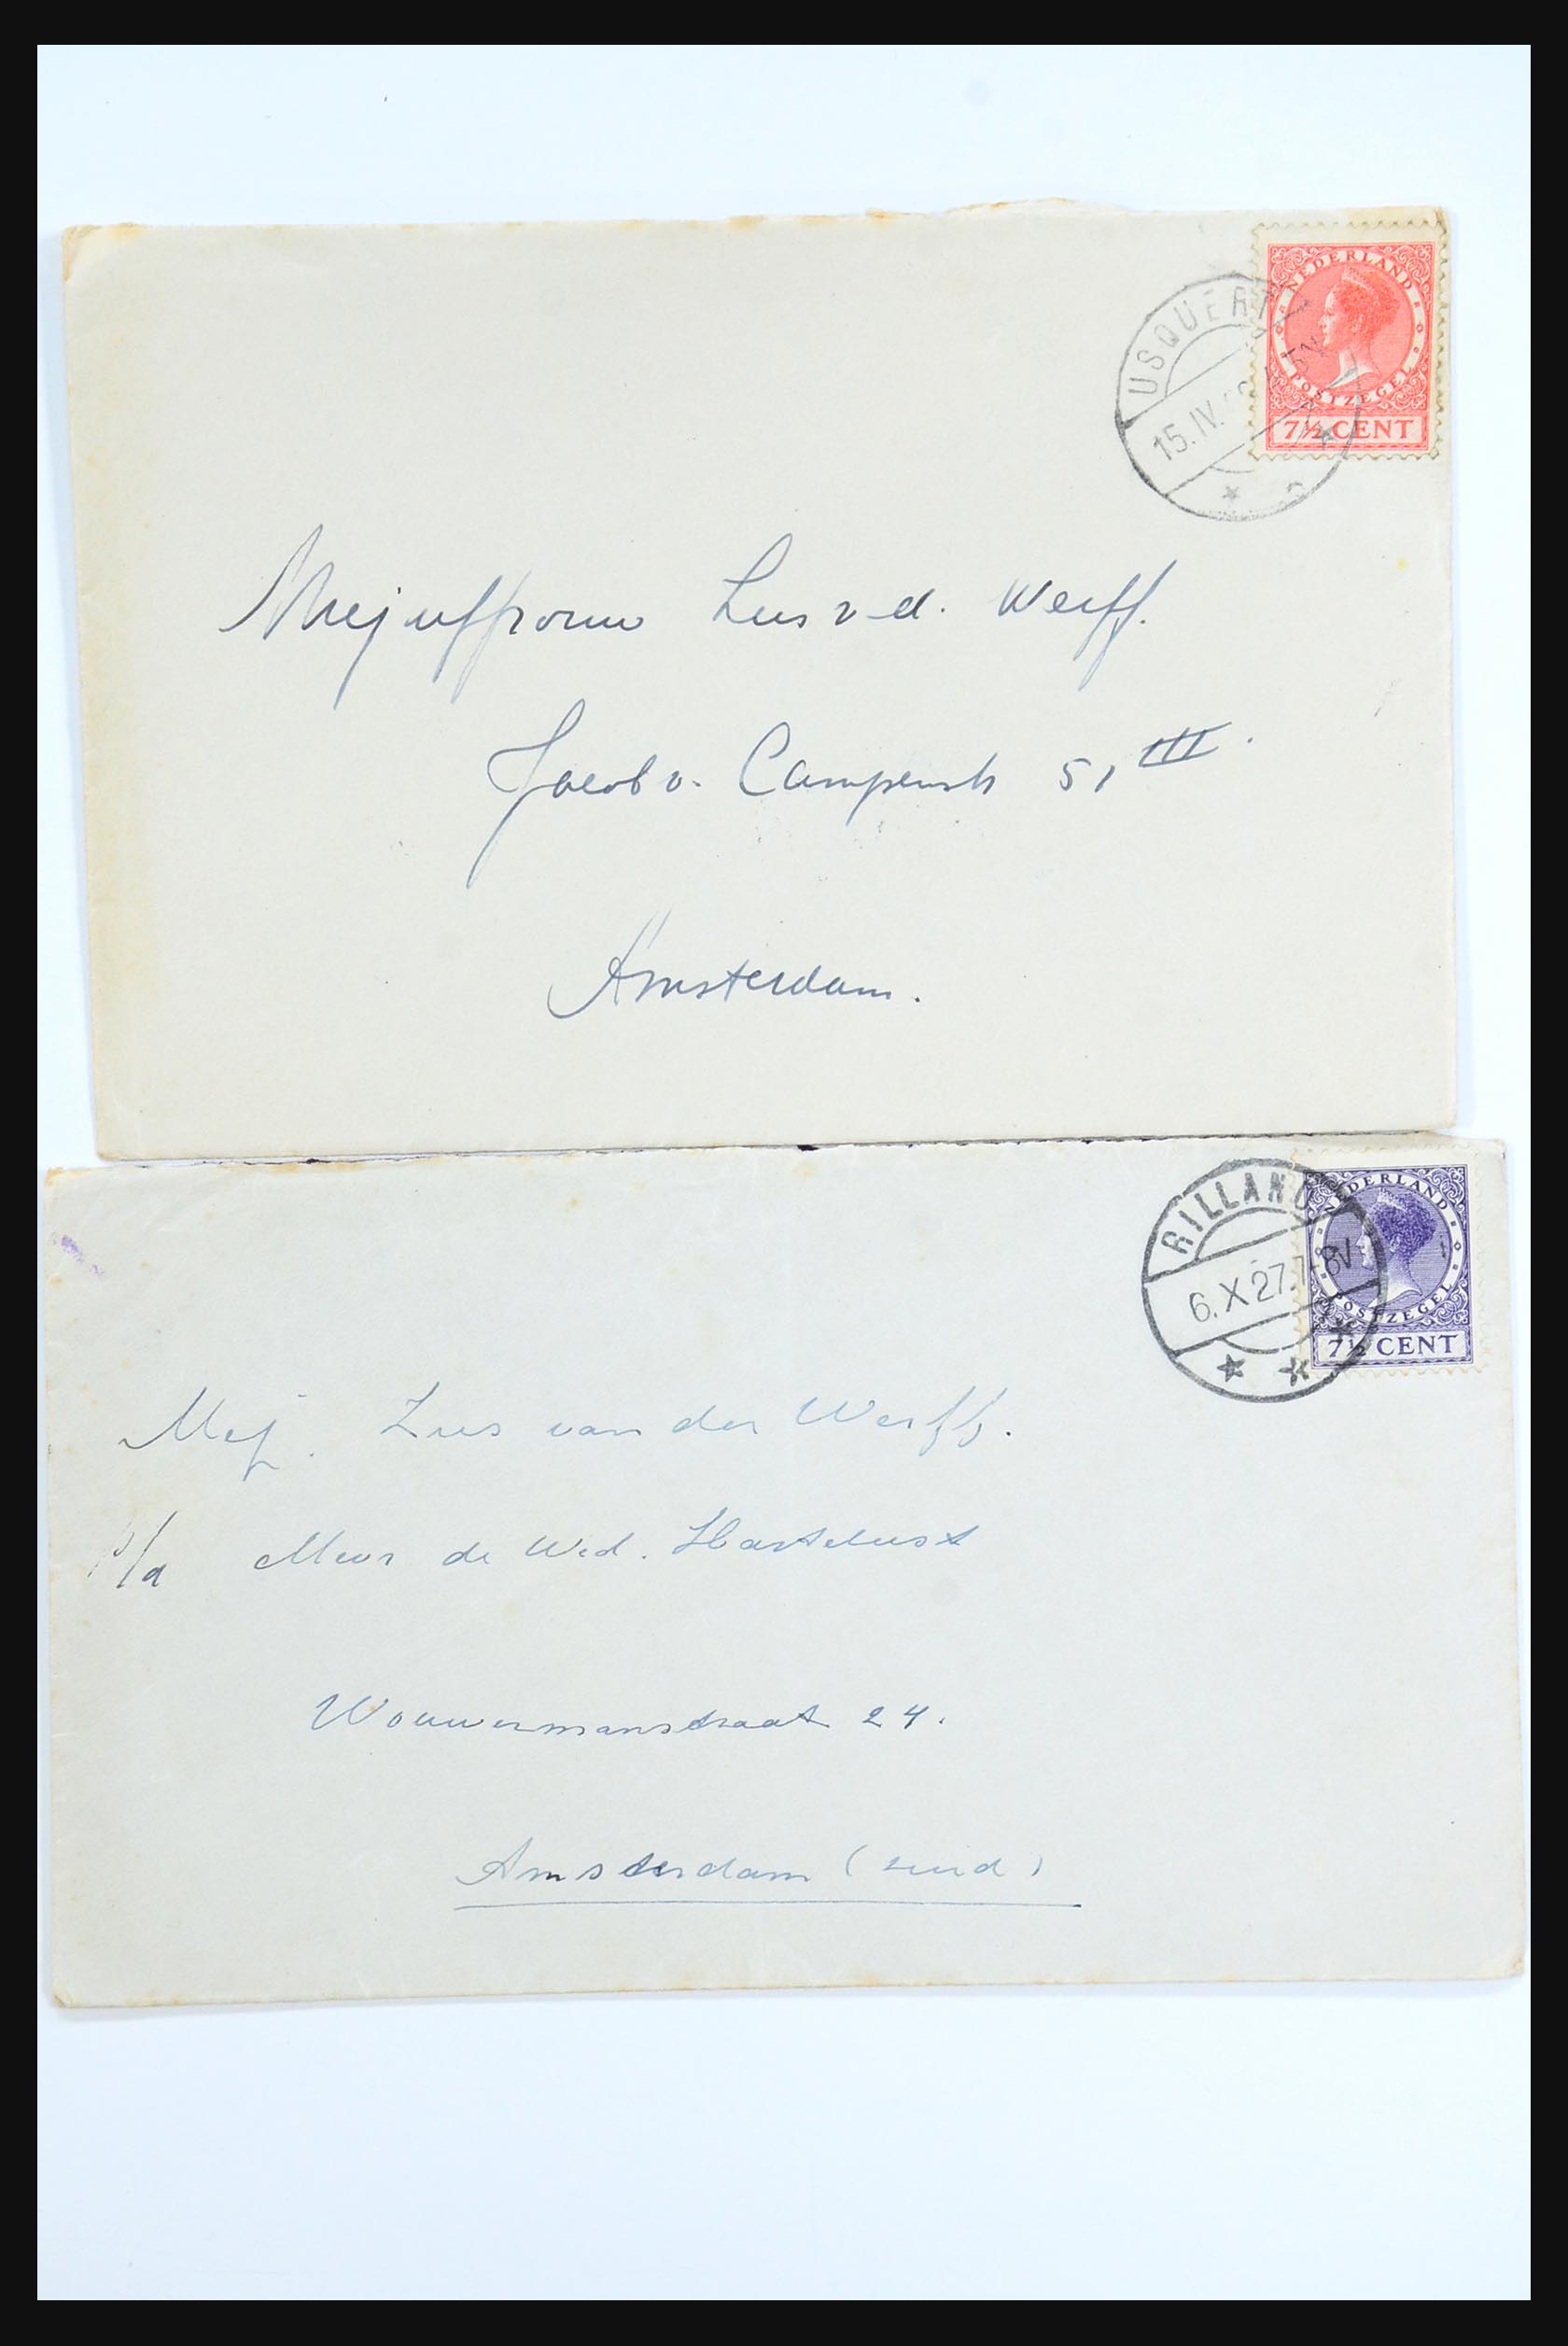 NEDERLAND
POSTZEGEL
7½ CENT
USQUERT
15.IV.
Mejuffrouw Lus v.d. Werff.
Jacob v. Campenstr 51 III.
Amsterdam.
NEDERLAND
POSTZEGEL
7½ CENT
RILLAND
6.X 27.7-8V
Mej. Lus van der Werff.
p/a Mevr de Wed. Hartelust
Wouwermanstraat 24.
Amsterdam (zuid)